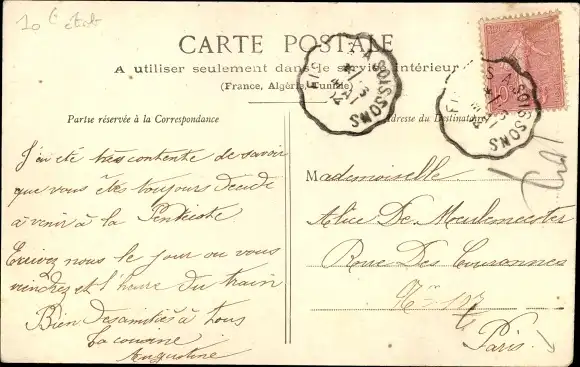 10 c
CARTE POSTALE
A utiliser seulement dans le service intérieur
(France, Algérie, Tunisie)
A SOISSONS
A SOISSONS
Partie réservée à la Correspondance
Adresse du Destinataire
J'ai eté très contente de savoir
que vous êtes toujours decidé
à venir à la Pentecôte
Ecrivez nous le jour ou vous
viendrez et l'heure du train
Bien des amitiés à tous
Ta cousine
Augustine
Mademoiselle
Alice De Meulemeester
Roue Des Couronnes
No 107
Paris